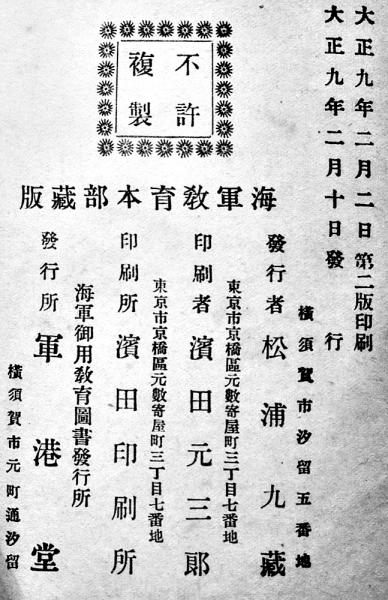 大正九年二月二日第二版印刷
大正九年二月十日發行
不許
複製
海軍敎育本部藏版
橫須賀市汐留五番地
發行者 松浦九藏
東京市京橋區元數寄屋町三丁目七番地
印刷者 濱田元三郞
東京市京橋區元數寄屋町三丁目七番地
印刷所 濱田印刷所
海軍御用敎育圖書發行所
發行所 軍港堂
橫須賀市元町通汐留